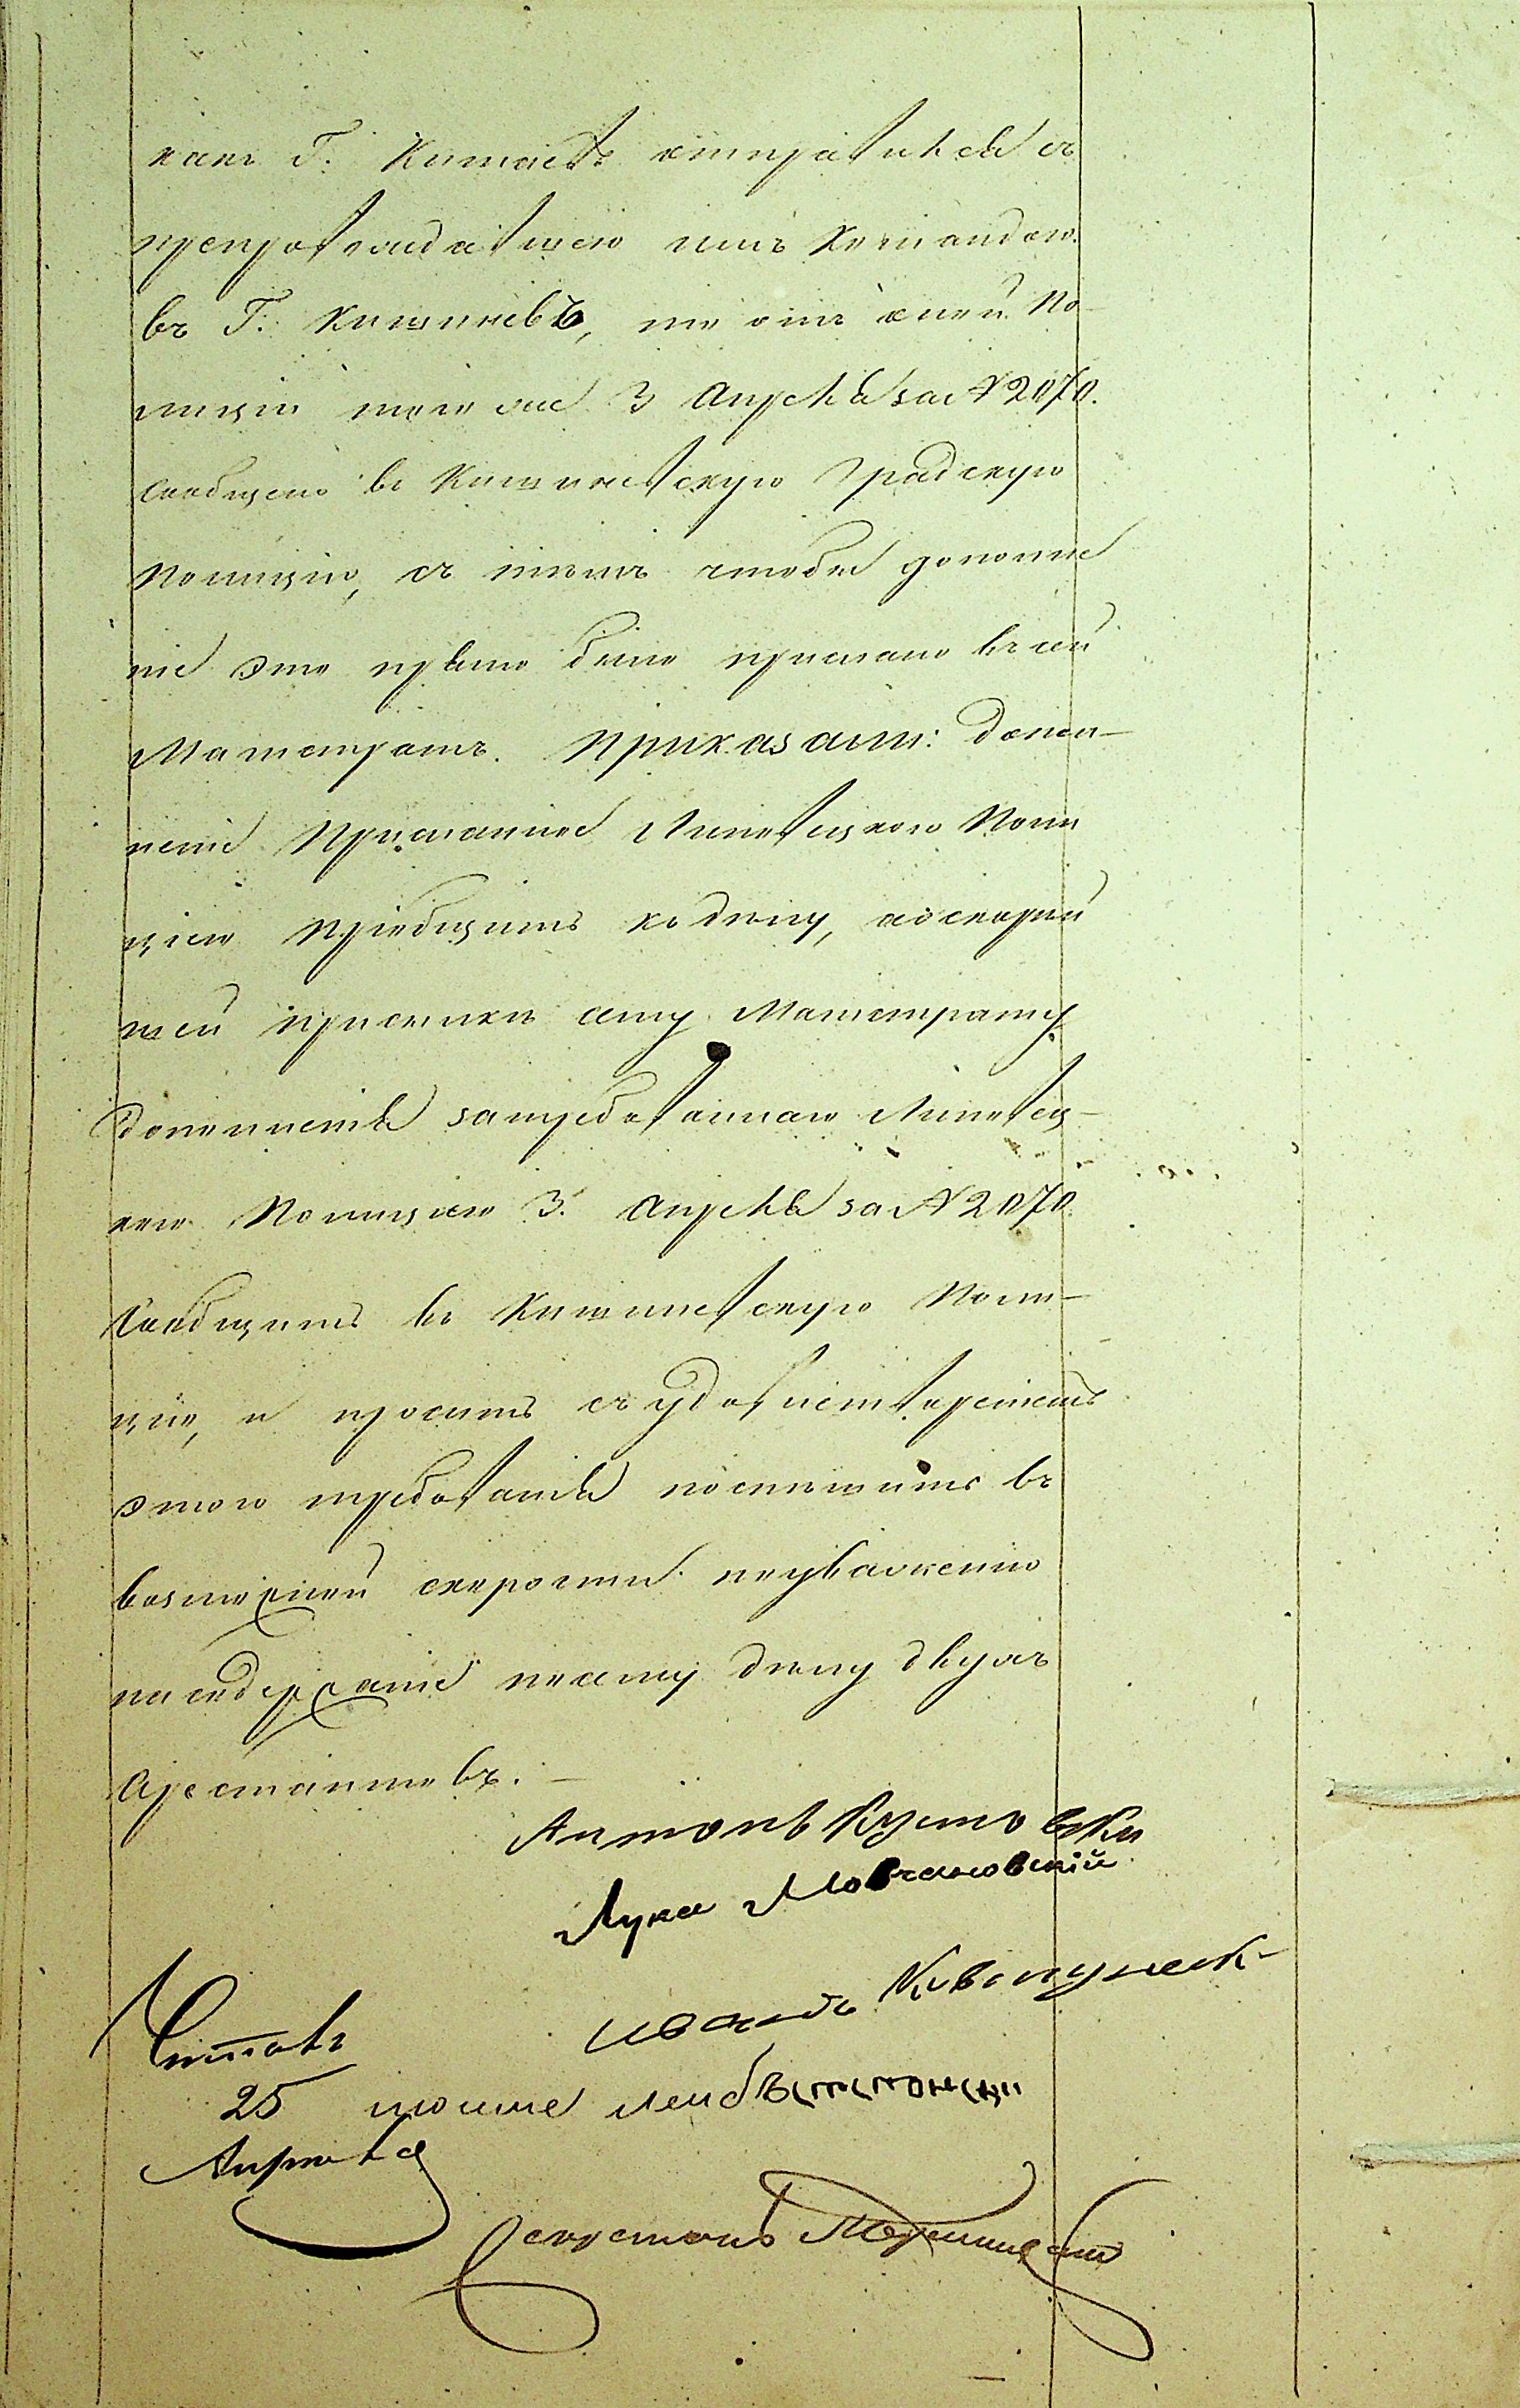 какъ Г. Китаевъ отправился съ
препровождавшею имъ командою.
въ Г. Кишиневъ, то отъ оной По-
лиціи того же 3 Апреля за № 2070.
сообщено въ Кишиневскую Градскую
Полицію, съ тѣмъ чтобы дополне
ніе это прямо было прислано въ сей
Магистратъ. Приказали: Допол-
неніе Присланное Липовецкою Поли
ціею пріобщить къ дѣлу, а о скорѣй
шей присылкѣ сему Магистрату
дополненія затребованнаго Липовец-
кою Полициею 3. Апреля за № 2070.
Сообщить въ Кишиневскую Поли-
цію, и просить съ удовлетвореніемъ
этого требованія поспѣшить въ
возможной скорости поуваженію
насодержаніе посему дѣлу двухъ
Арестантовъ. —
Антонъ
Лука Мовчановскій
Иванъ
Читалъ
25
Апреля
Секретарь